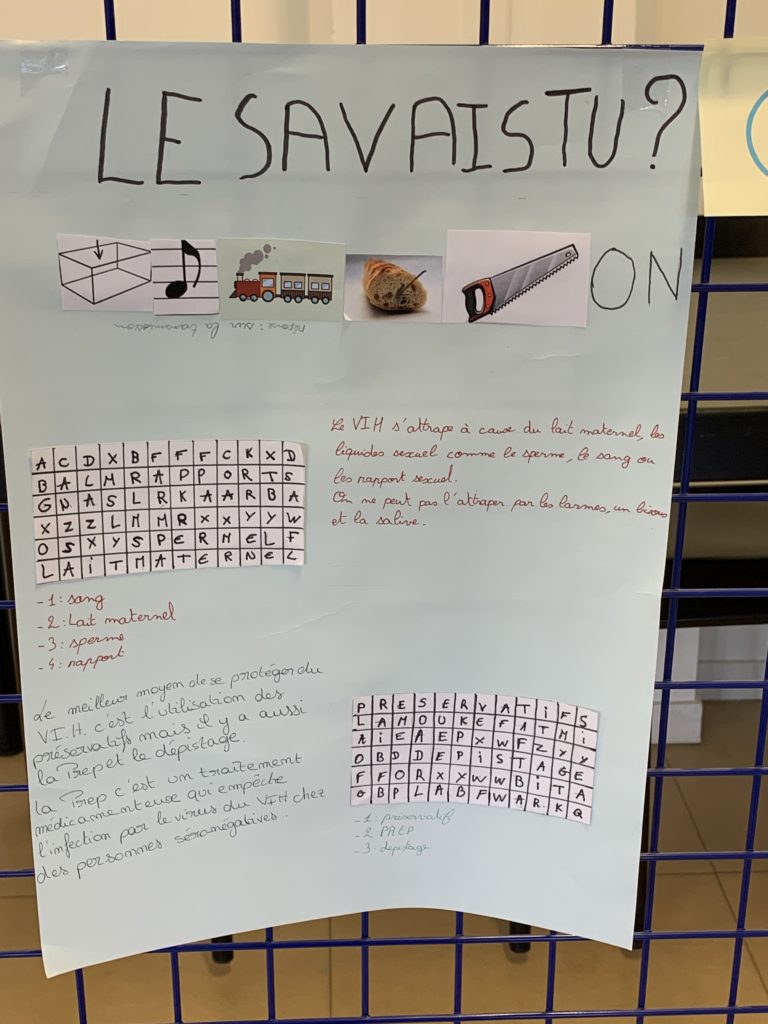 LE SAVAIS TU?
ON
réponse : sur la transmission
Le VIH s'attrape à cause du lait maternel, les
liquides sexuel comme le sperme, le sang ou
les rapport sexuel.
On ne peut pas l'attraper par les larmes, un bisous
et la salive.
A C D X B F F F C K X D
B A L M R A P P O R T S
G N A S L R K A A R B A
X Z Z L M M R X X Y Y W
O S X Y S P E R M E L F
L A i T M A T E R N E L
-1: sang
-2: Lait maternel
-3: sperme
-4: rapport
Le meilleur moyen de se protéger du
V.I.H. c'est l'utilisation des
préservatifs mais il y a aussi
la Prep et le dépistage.
la Prep c'est un traitement
médicamenteux qui empêche
l'infection par le virus du VIH chez
des personnes séronégatives..
P R E S E R V A T i F S
L A M O U K E F A T M i
A i E A E P X W F Z Y Y
O B D D E P i S T A G E
F F O R X Y W W B i T A
O B P L A B F W A R K Q
-1: préservatif
-2 PREP
-3 depistage